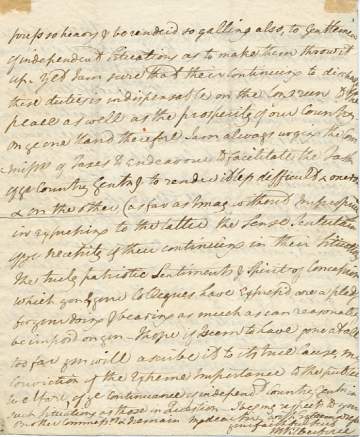 press so heavy & be rendered so galling also, to Gentlemen
of independent Situations as to make them throw it
up. Yet I am sure that their continuing to discharge
these duties is indispensable on the Long run to the
peace as well as the prosperity of our Country.
On the one Hand therefore I am always urging the Com
missrs of Taxes to endeavour to facilitate the Task
of the Country Gentn & to render it less difficult & onerous
& on the other (as far as I may without Impropriety)
in expressing to the latter the Sense I entertain
of the necessity of their continuing in their Situations
The truly patriotic Sentiments & Spirit of Concession
which you & your Colleagues have expressd are a pledge
of your doing & bearing as much as can reasonably
be imposd on you. I hope if I seem to have gone a little
too far you will ascribe it to its true Cause, my
Conviction of the Extreme Importance to the public
Welfare of the Continuance of independt Country Gentn in
such Situations as those in Question. I beg my respects to your
Brother Commissrs & I remain my dear Sir
your faithful Servt
W Wilberforce